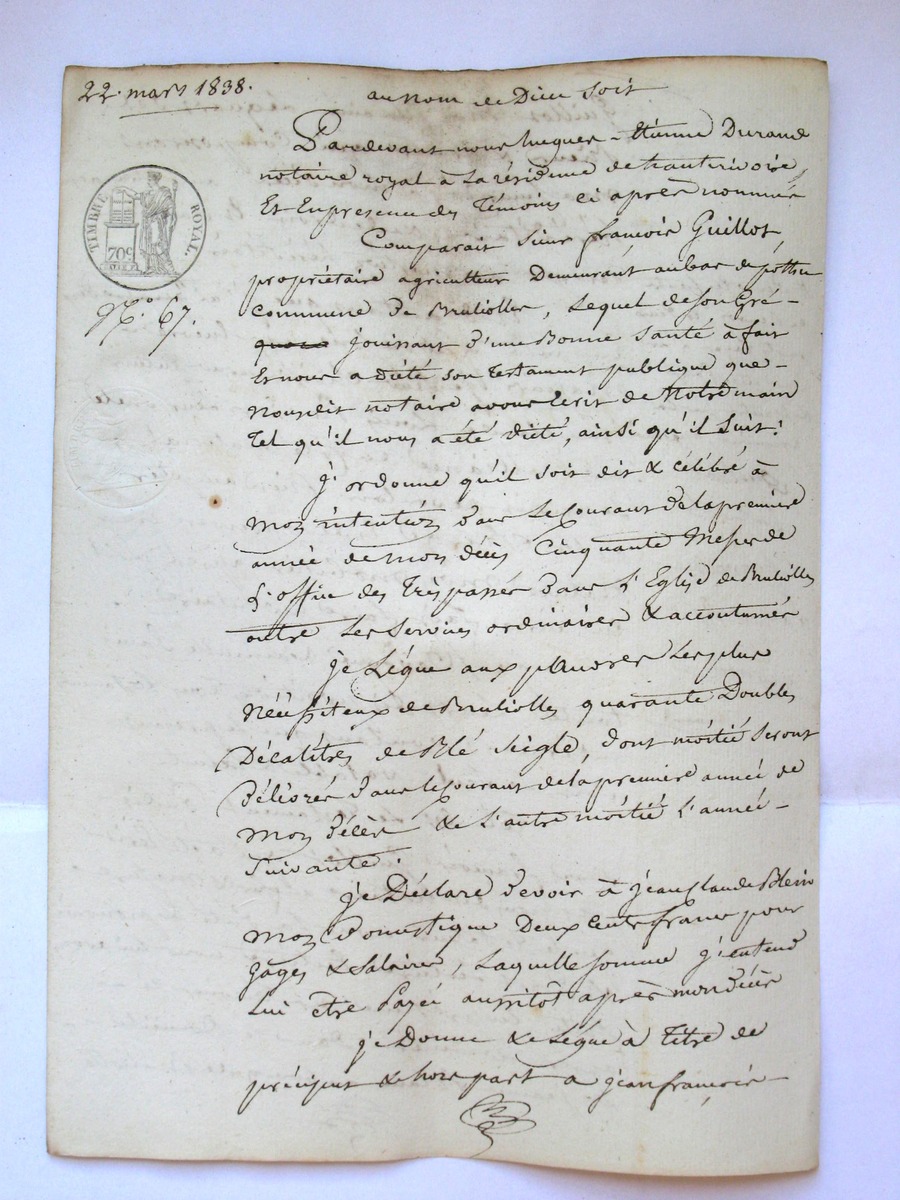 22. mars 1838.
au nom de Dieu soit
Pardevant nous hugues-Etienne Durand
notaire royal à la résidence de hauterivoire,
Et En presence des Témoins ci après nommés
TIMBRE ROYAL.
70c
Comparait Sieur françois Guillot
propriétaire agriculteur Demeurant au bas de
N.o 67.
Commune De Brulioller, Lequel de son Gré -
jouissant d'une Bonne Santé à fait
Et nous a dicté son Testament publique que -
nousdit notaire avons Ecrit de Notre main
Tel qu'il nous a été dicté, ainsi qu'il Suit:
j'ordonne qu'il soit dit & célébré à
mon intention dans Le Courant de la premiere
année de mon décès Cinquante Messes de
L'office des Trèspassés dans L'Eglise de Bruliolles
outre Les Services ordinaires & accoutumés
je Lègue aux pauvres Les plus
Nécessiteux de Bruliolles quarante Doubles
Décalitres de Blé seigle, dont moitié seront
Délivrés dans le Courant de la premiere année de
mon décès & L'autre moitié L'année -
Suivante.
je Déclare devoir à jean Claude Blein
mon Domestique Deux Cents francs pour
gages & Salaires, Laquelle Somme j'entend
Lui être Payée aussitôt après mon décès
je Donne & Lègue à Titre de
préciput & hors part a jean françois -